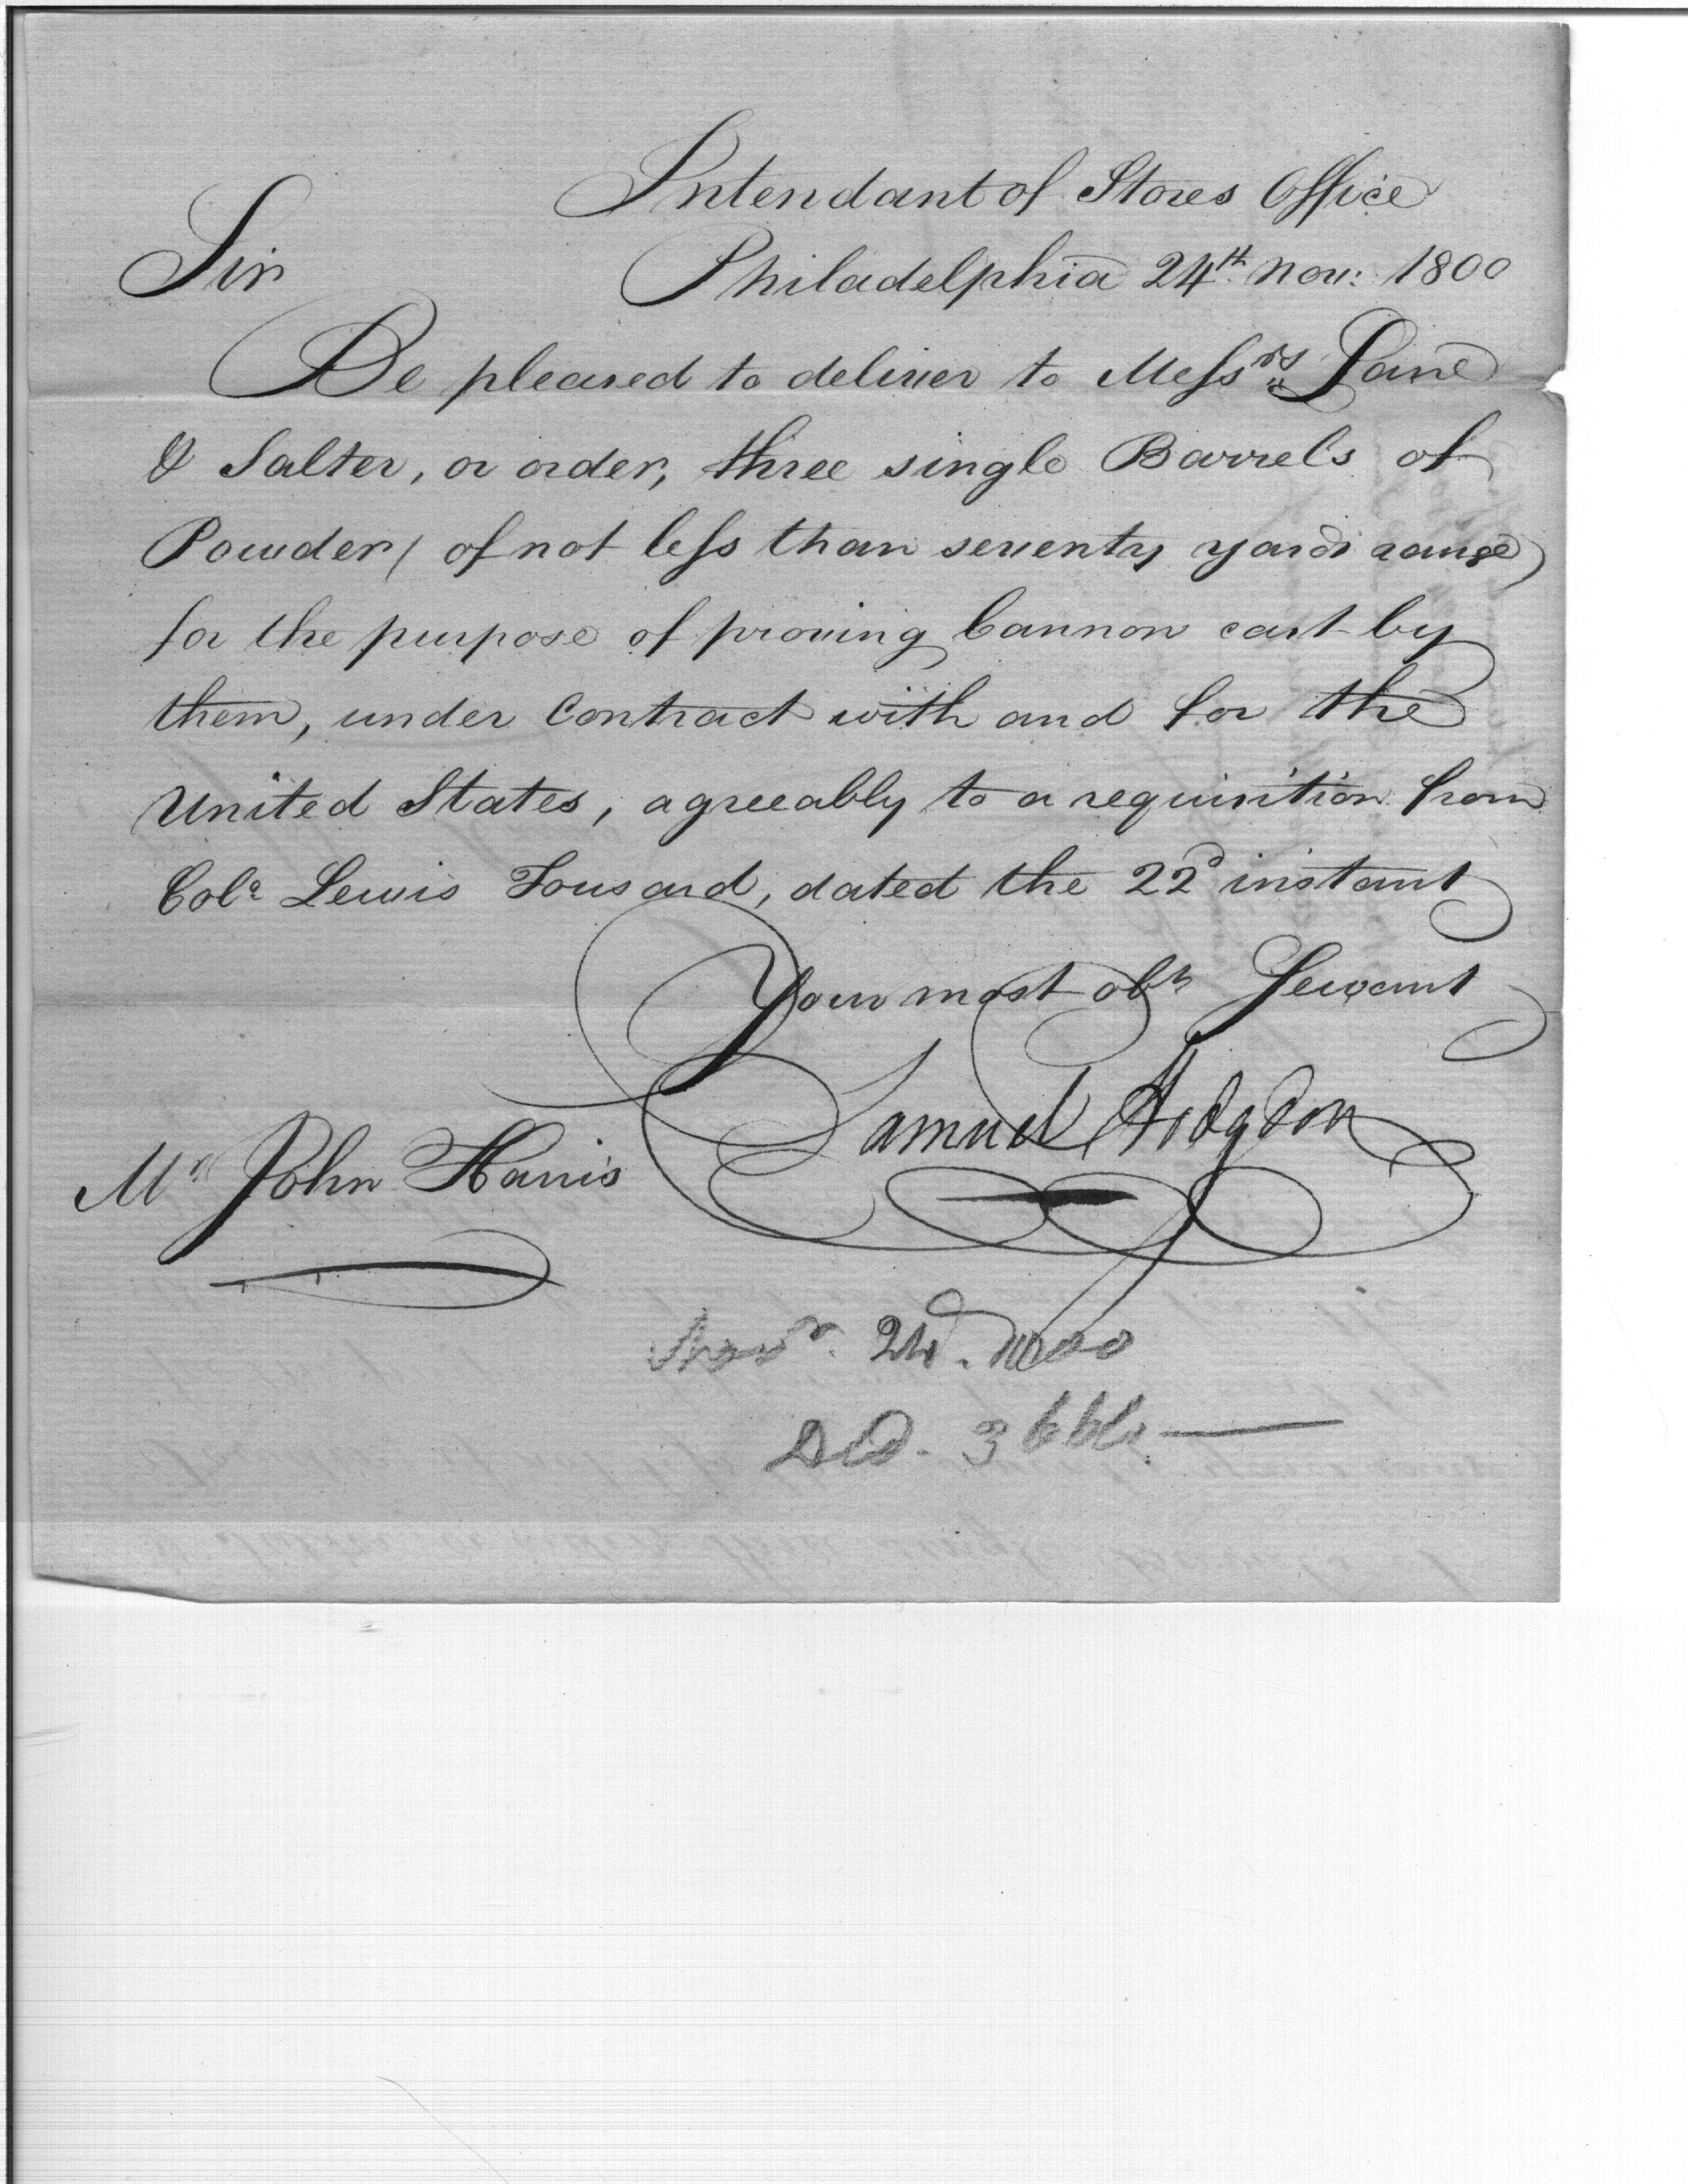 Intendant of Stores Office
Sir Philadelphia 24th Nov: 1800
Be pleased to deliver to Messrs Lane
& Salter, or order, three single Barrels of
Powder ( of not less than seventy yards range )
for the purpose of proving Cannon cast by
them, under Contract with and for the
United States, agreeably to a requisition from
Colo Lewis Tousard, dated the 22d instant
Your most obt Servant
Samuel Hodgdon
Mr John Harris
Novr. 24. 1800
Dd. 3 bbls.